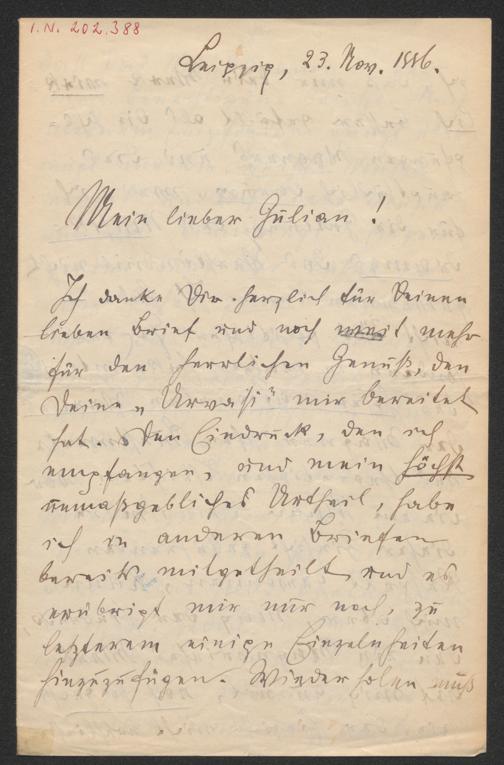 I. N. 202.388
Leipzig, 23. Nov. 1886.
Mein lieber Gulian!
Ich danke Dir herzlich für Deinen
lieben Brief und noch weit mehr
für den herrlichen Genuß, den
Deine „Urvasi" mir bereitet
hat. Den Eindruck, den ich
empfangen, und mein höchst
unmaßgebliches Urtheil, habe
ich in anderen Briefen
bereits mitgetheilt und es
erübrigt mir nur noch, zu
letzterem einige Einzelnheiten
hinzuzufügen. Wiederholen muß